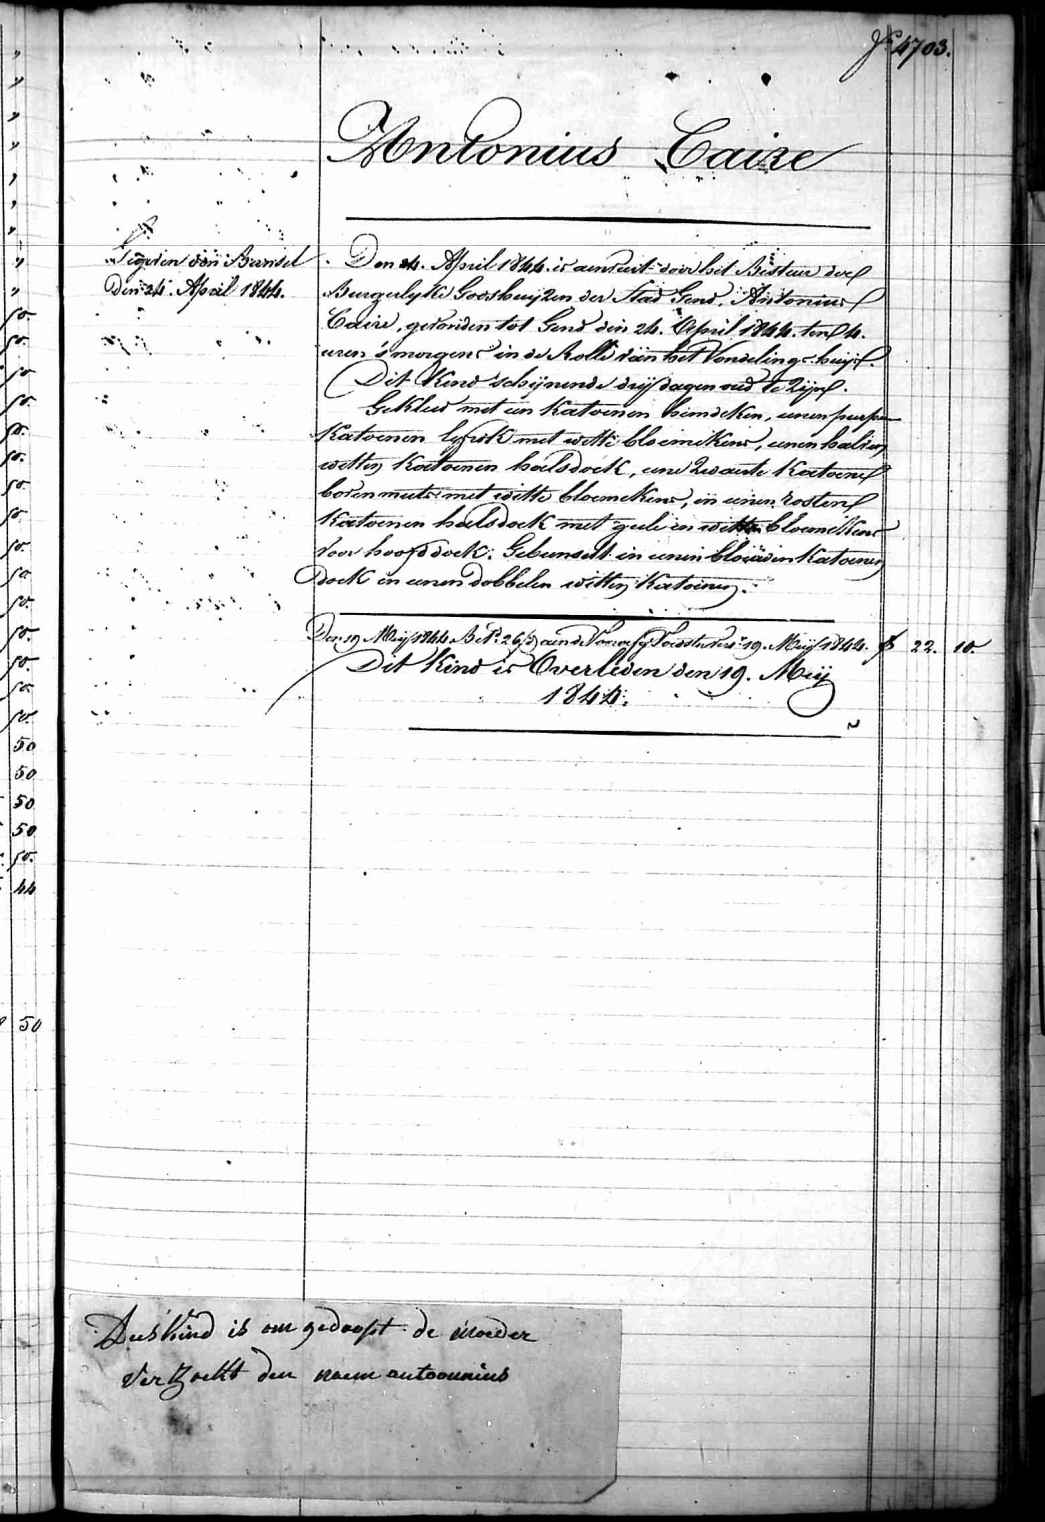 Nº 4703.
Antonius Caire
den 24. April 1844.
Den 24. April 1844. is aenveirt door het Bestuer der
Burgerlyke Godshuyzen der Stad Gend, Antonius
Caire, gevonden tot Gend den 24. April 1844. ten 4.
uren 's morgens in de Rolle van het Vondelingshuys.
Dit Kind schynende dry dagen oud te Zyn.
Gekleed met een Katoenen hemdeken, eenen
Katoenen lyfrok met witte bloemekens, eenen halven
witten Katoenen halsdoek, eene Zwarte Katoene
bovenmuts met witte bloemekens, en eenen rosten
Katoenen halsdoek met geele en witte bloemekens
voor hoofddoek. Gebunseld in eenen blauwen Katoenen
doek en eenen dobbelen witten Katoenen.
Den 19 Mey 1844 Bet. 26 d aen de 19. Mey 1844. f 22. 10
Dit Kind is Overleden den 19. Mey
1844.
50
50
50
50
50.
44
50
Dees Kind is om gedoopt de moeder
verzoekt den naem antoounius